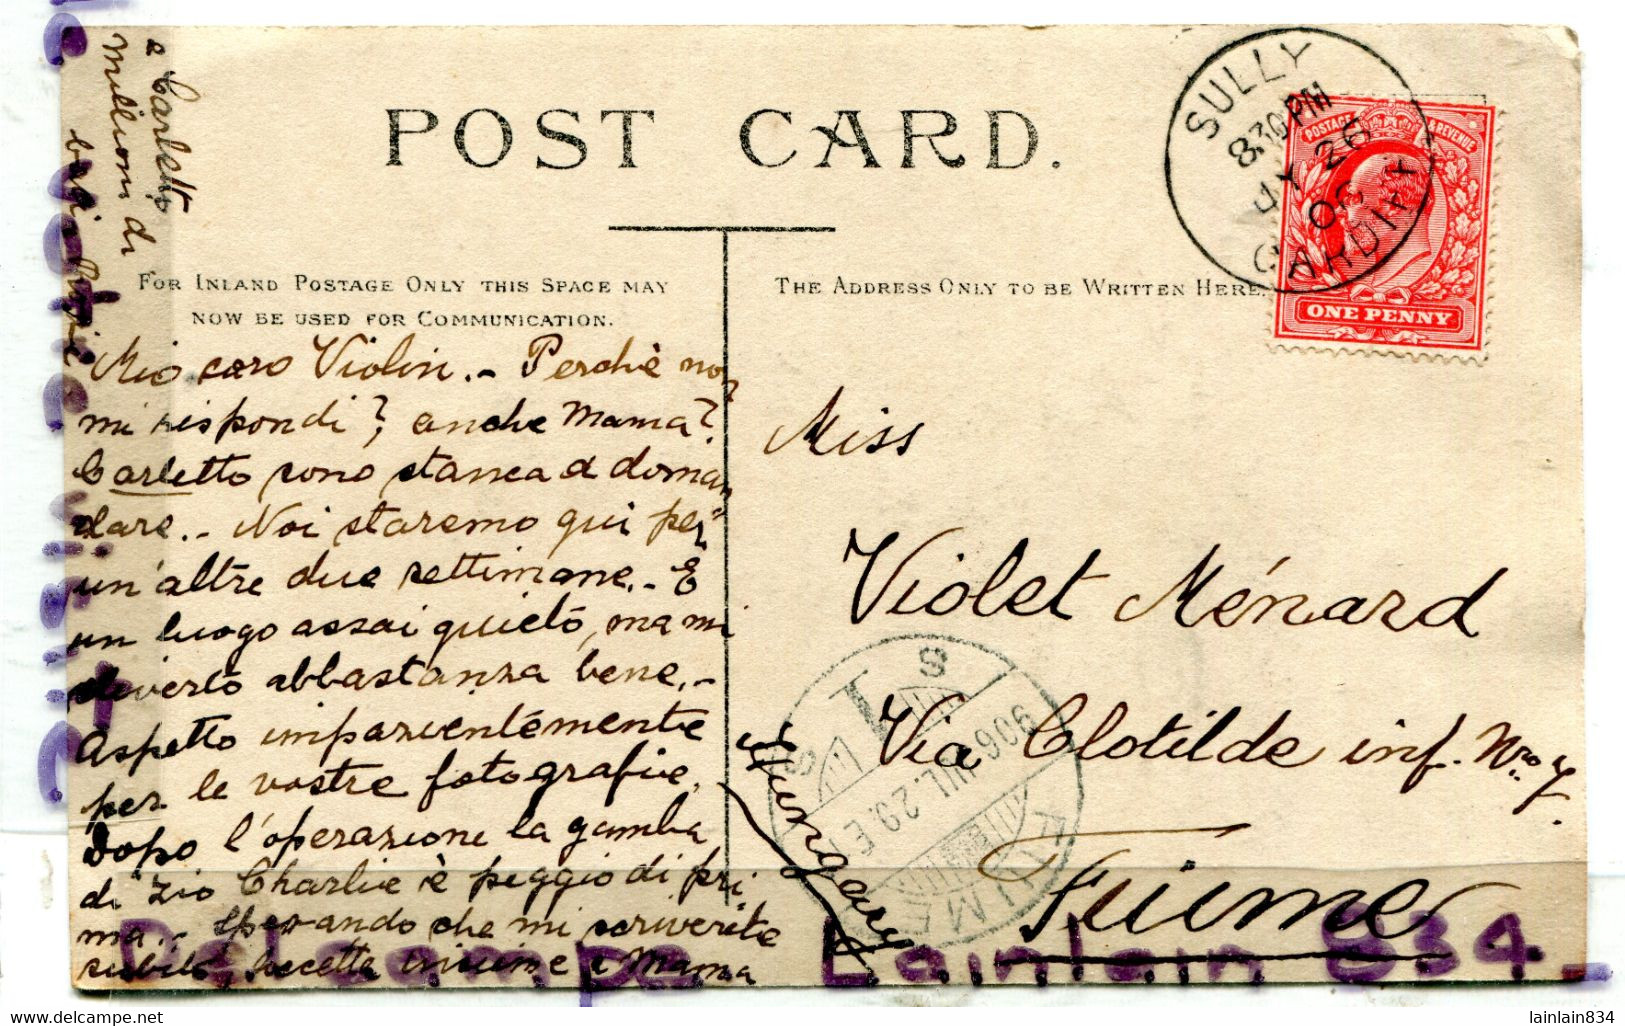 POST CARD.
FOR INLAND POSTAGE ONLY THIS SPACE MAY
NOW BE USED FOR COMMUNICATION.
THE ADDRESS ONLY TO BE WRITTEN HERE.
SULLY
8.30 PM
26
06
CARDIFF
POSTAGE & REVENUE
ONE PENNY
Mio caro Violin.- Perchè non
mi rispondi? anche Mama?
Carletto sono stanca a doman
dare.- Noi staremo qui per
un'altre due settimane.- E
un luogo assai quieto, ma mi
diverto abbastanza bene.-
Aspetto impazientemente
per le vostre fotografie.
Dopo l'operazione la gamba
di zio Charlie è peggio di pri
ma.- Sperando che mi scriverete
subito, accetta insieme a Mama
e Carletto
milioni di
baci
Miss
Violet Ménard
Via Clotilde inf. Nro 7.
Fiume
Hungary
FIUME
906 JUL. 29. E
delcampe
Lainlain 834
delcampe.net
lainlain834